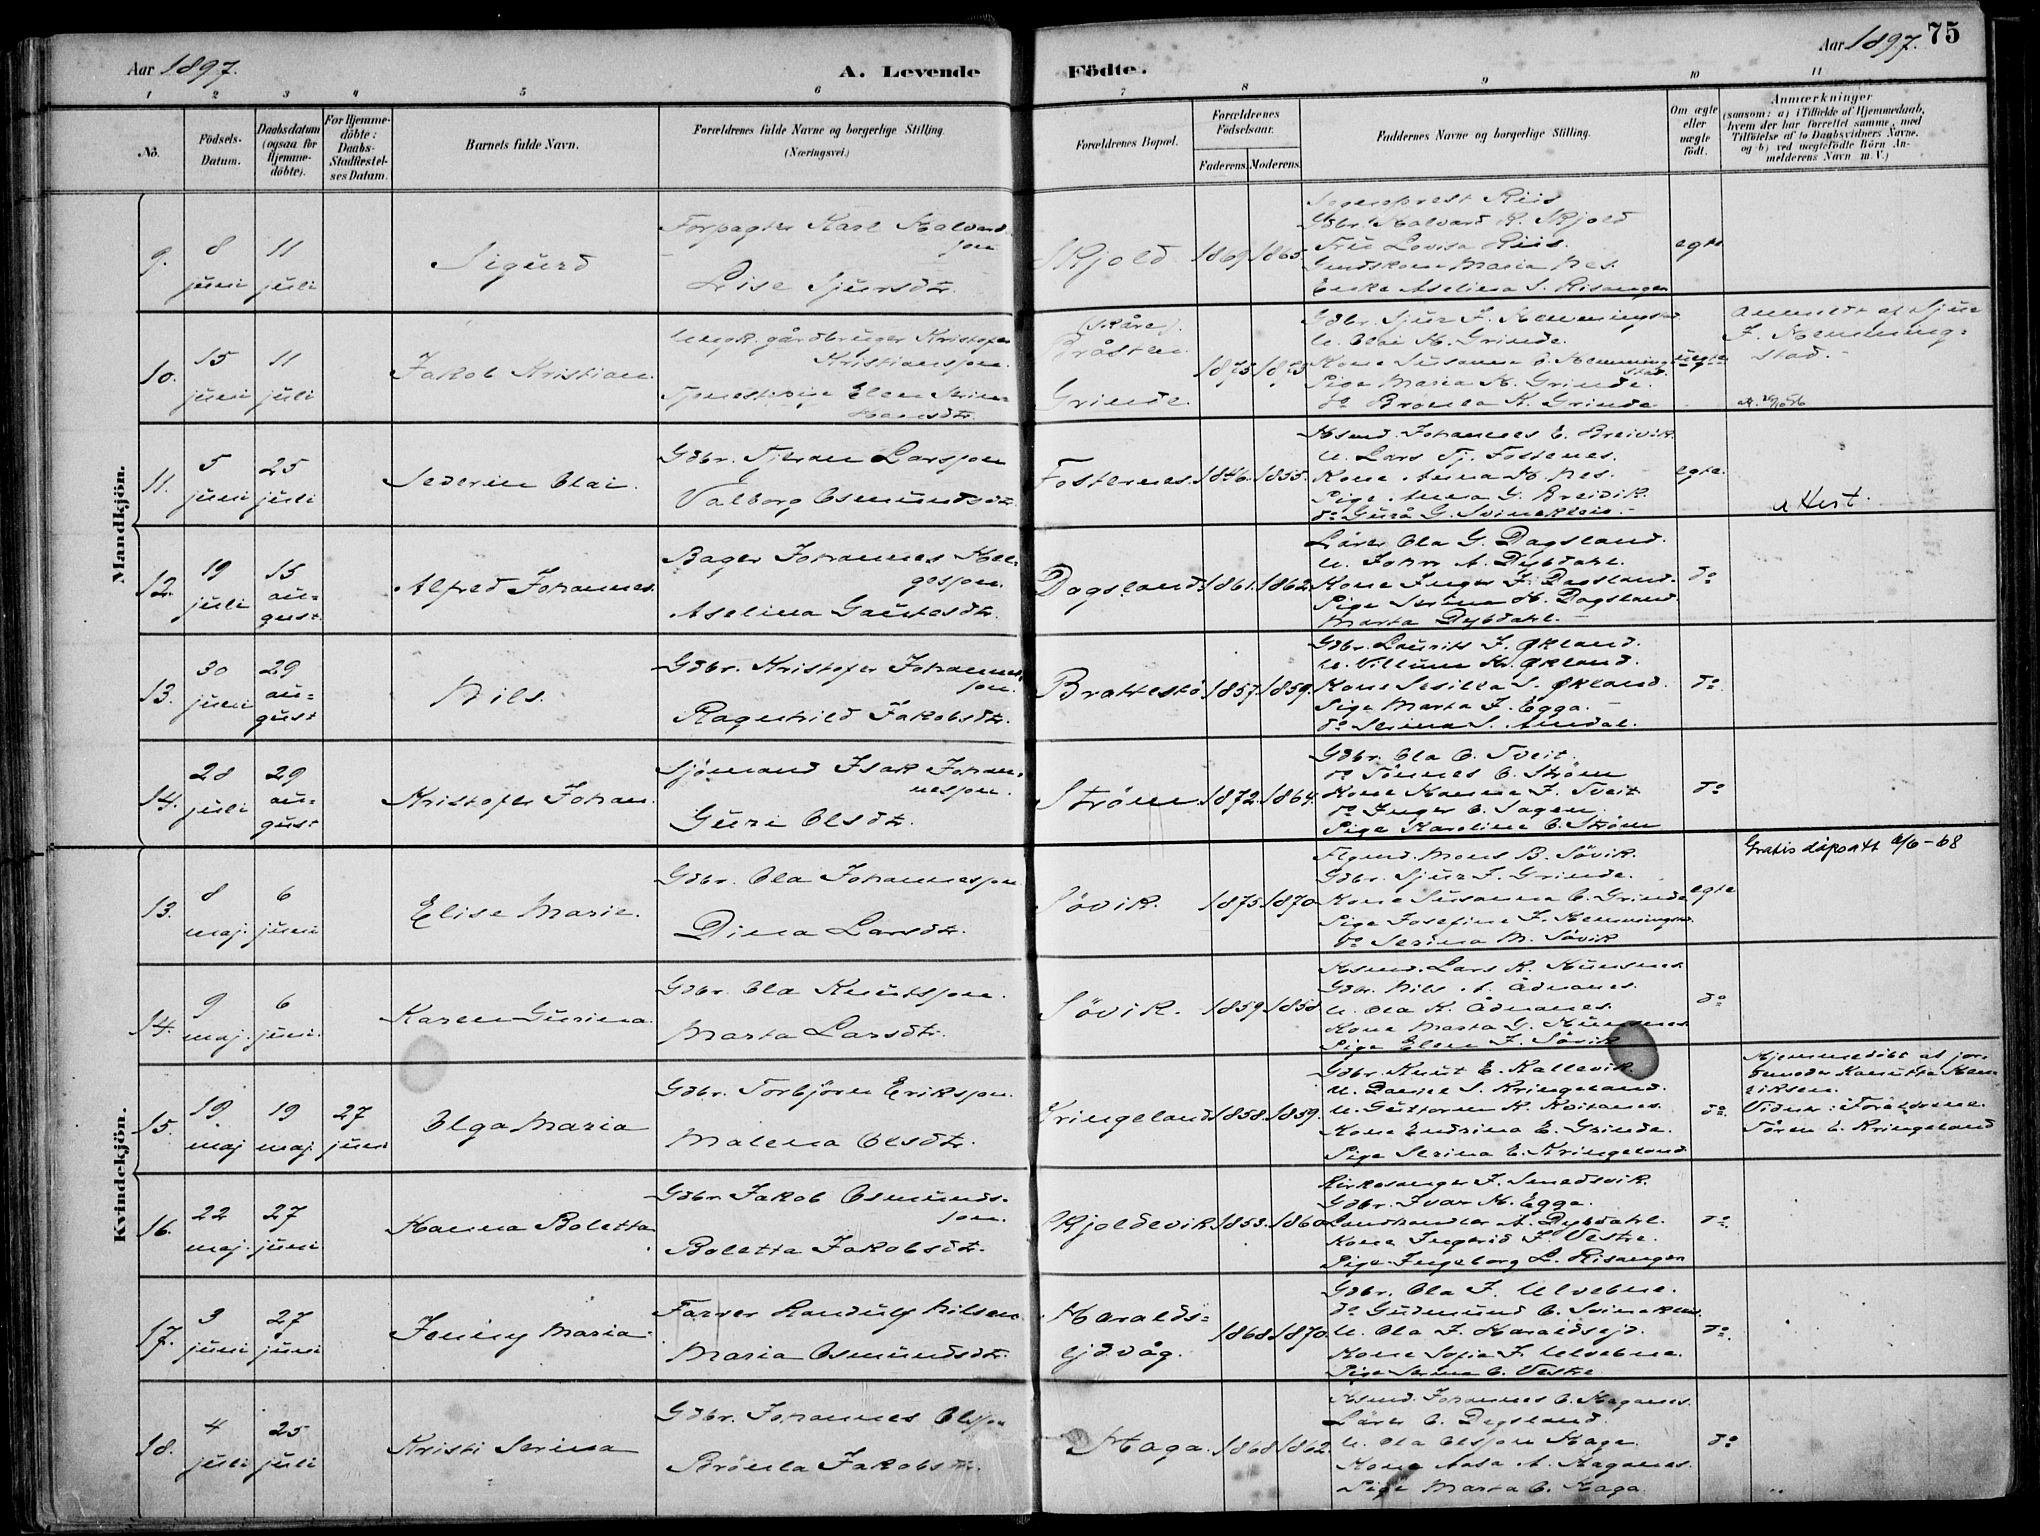 Aar 1897.
A. Levende
Födte.
Aar 1897. 75
1 2 3 4 5 6 7 8 9 10 11
No.
Födsels-Datum.
Daabsdatum (ogsaa for Hjemmedöbte).
For Hjemmedöbte: Daabs-Stadfæstelses Datum.
Barnets fulde Navn.
Forældrenes fulde Navne og borgerlige Stilling. (Næringsvei.)
Forældrenes Bopæl.
Forældrenes Födselsaar.
Faderens. Moderens.
Faddernes Navne og borgerlige Stilling.
Om ægte eller uægte födt.
Anmærkninger
(saasom: a) i Tilfælde af Hjemmedaab, hvem der har forrettet samme, med Tilföielse af to Daabsvidners Navne, og b) ved uægtefödte Börn Anmelderens Navn m. V.)
Mandkjön.
9. 8 juni 11 juli Sigurd
Forpagter Karl Halvardson
Lise Sjursdtr.
Skjold 1869 1865
Sogneprest Riis
Gdbr. Halvard K. Skjold
Frue Lovisa Riis.
Maria Nes.
Enke Aselina S. Risanger
egte
10. 15 juni 11 juli Jakob Kristian.
Ungk. gårdbruger Kristofer Kristiansson.
Tjenestepige Elen Serine Hansdtr.
(Skåre) Bråsten.
Grinde. 1873 1873
Gdbr. Sjur J. Hemmingstad
U. Olai H. Grinde.
Kone Susanna O. Hemmingstad.
Pige Maria H. Grinde.
do Brönla H. Grinde
uegte
Anmeldt af Sjur J. Hemmingstad.
11. 5 juni 25 juli Sederin Olai.
Gdbr. Tjeran Larsson
Valborg Osmundsdtr.
Fosternes. 1846. 1855.
Hsmd. Johannes E. Breivik.
U. Lars Tj. Fosternes.
Kone Anna H. Nes.
Pige Anna G. Breivik.
do Gurå G. Svinakleiv.
egte.
Attest.
12. 19 juli 15 august Alfred Johannes.
Bager Johannes Helgesson.
Aselina Gautesdtr.
Dagsland. 1861. 1862
Lærer Ola G. Dagsland.
U. John A. Dybdahl.
Kone Inger J. Dagsland.
Pige Serina H. Dagsland.
Marta Dybdahl.
do
13. 30 juni 29 august Nils.
Gdbr. Kristofer Johannesson.
Ragnhild Jakobsdtr.
Brattestö 1857. 1859.
Gdbr. Laurits J. Økland.
U. Villum Kr. Økland.
Kone Sesilla S. Økland.
Pige Marta J. Egga.
do Serina S. Amdal.
do
14. 28 juli 29 august Kristofer Johan.
Sjömand Isak Johannesson.
Guri Olsdtr.
Ström 1872. 1864.
Gdbr. Ola O. Tveit.
do Tönnes O. Ström
Kone Hanna J. Tveit
do Inger O. Sagen.
Pige Karolina O. Ström
do
Kvindekjön.
13. 8 maj. 6 juni Elise Marie.
Gdbr. Ola Johannesson
Dina Larsdtr.
Sövik. 1875. 1870
Mons B. Sövik.
Gdbr. Sjur J. Grinde.
Kone Susanna O. Grinde
Pige Josefine J. Hemmingstad.
do Serina M. Sövik
egte
Gratis dåpsatt 6/6-68
14. 9 maj. 6 juni. Karen Gurina.
Gdbr. Ola Knutsson.
Marta Larsdtr.
Sövik. 1859. 1858
Hsmd. Lars K. Hunsnes.
Gdbr. Nils A. Ådnanes.
U. Ola K. Ådnanes.
Kone Marta G. Hunsnes.
Pige Elen J. Sövik
do
15. 19 maj 19 maj. 27 juni Olga Maria
Gdbr. Torbjörn Eriksson.
Malena Olsdtr.
Kringeland 1858. 1859.
Gdbr. Knut E. Kallevik
U. Daniel S. Kringeland.
U. Guttorm K. Kvitanes.
Kone Endrina E. Grinde.
Pige Serina E. Kringeland
do
Hjemmedöbt af jordemoder Hanutta Henriksen.
Vidner: Forældrene.
Sören E. Kringeland
16. 22 maj. 27 juni Hanna Boletta.
Gdbr. Jakob Osmundsson.
Boletta Jakobsdtr.
Skjoldevik 1853. 1860
Kirkesanger J. Smedsvik.
Gdbr. Ivar H. Egge.
Landhandler A. Dybdahl.
Kone Ingerid J. Vestre.
Pige Ingeborg L. Risanger
do
17. 3 juni 27 juni Jenny Maria
Farver Landulf Nilsen.
Maria Osmundsdtr.
Haraldsejdvåg. 1868 1870.
Gdbr. Ola J. Ulvebne.
do Gudmund O. Svinaklei.
U. Ola J. Haraldsejd.
Kone Sofia J. Ulvebne.
Pige Serina O. Vestre
do
18. 4 juli 25 juli Kristi Serina
Gdbr. Johannes Olsson
Brönla Jakobsdtr.
Haga. 1868 1862.
Hsmd. Johannes O. Haganes.
Lærer O. Dagsland.
U. Ola Olsson Haga.
Kone Aasa A. Haganes.
Pige Marta O. Haga
do